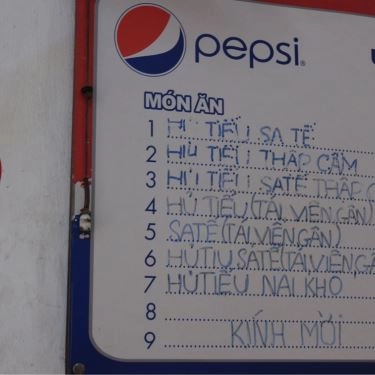 pepsi
MÓN ĂN
1 HỦ TIẾU SA TẾ
2 HỦ TIẾU THẬP CẨM
3 HỦ TIẾU SATẾ THẬP C
4 HỦ TIẾU (TÁI VIÊN GÂN)
5 SATẾ (TÁI VIÊN GÂN)
6 HỦ TIU SATẾ (TÁI VIÊN GÂ
7 HỦ TIẾU NAI KHÔ
8
9 KÍNH MỜI